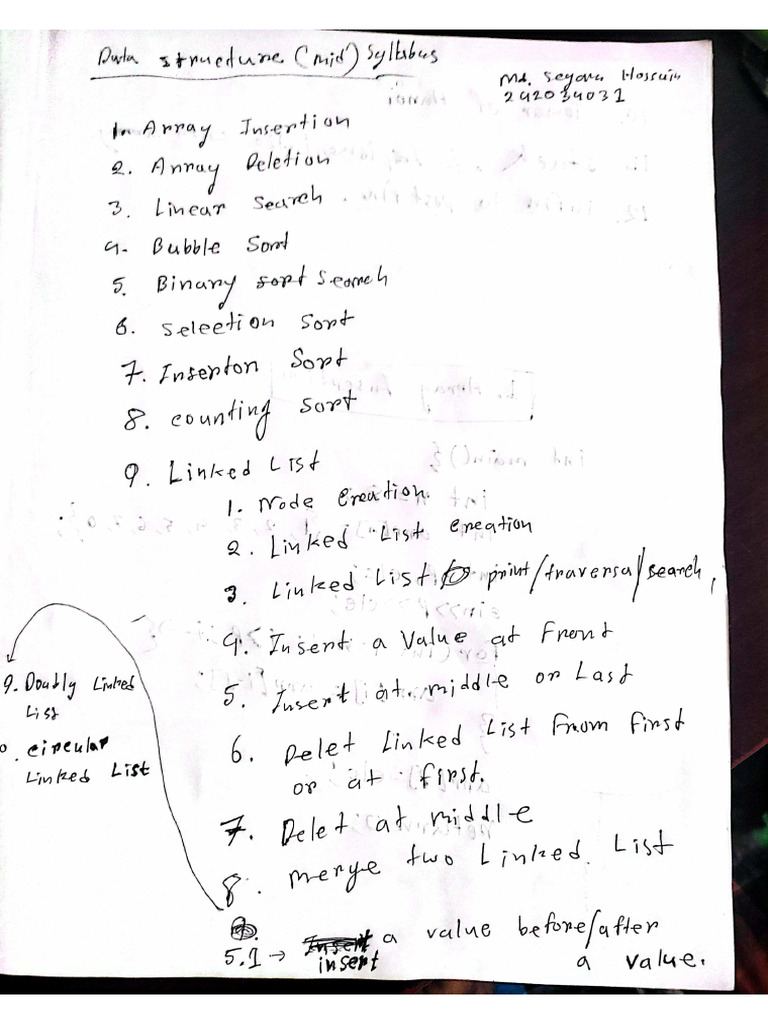 Data structure (mid) Syllabus
Md. Seyam Hossain
242034031
1. Array Insertion
2. Array Deletion
3. Linear Search
4. Bubble Sort
5. Binary sort Search
6. Selection Sort
7. Inserton Sort
8. counting Sort
9. Linked List
1. Node Creation.
2. Linked List creation
3. Linked List print/traversal/search,
4. Insert a Value at Front
5. Insert at middle or Last
6. Delet Linked List From first
or at first.
7. Delet at middle
8. Merge two Linked List
9. Doubly Linked
List
0. circular
Linked List
5.1 → insert a value before/after
a value.